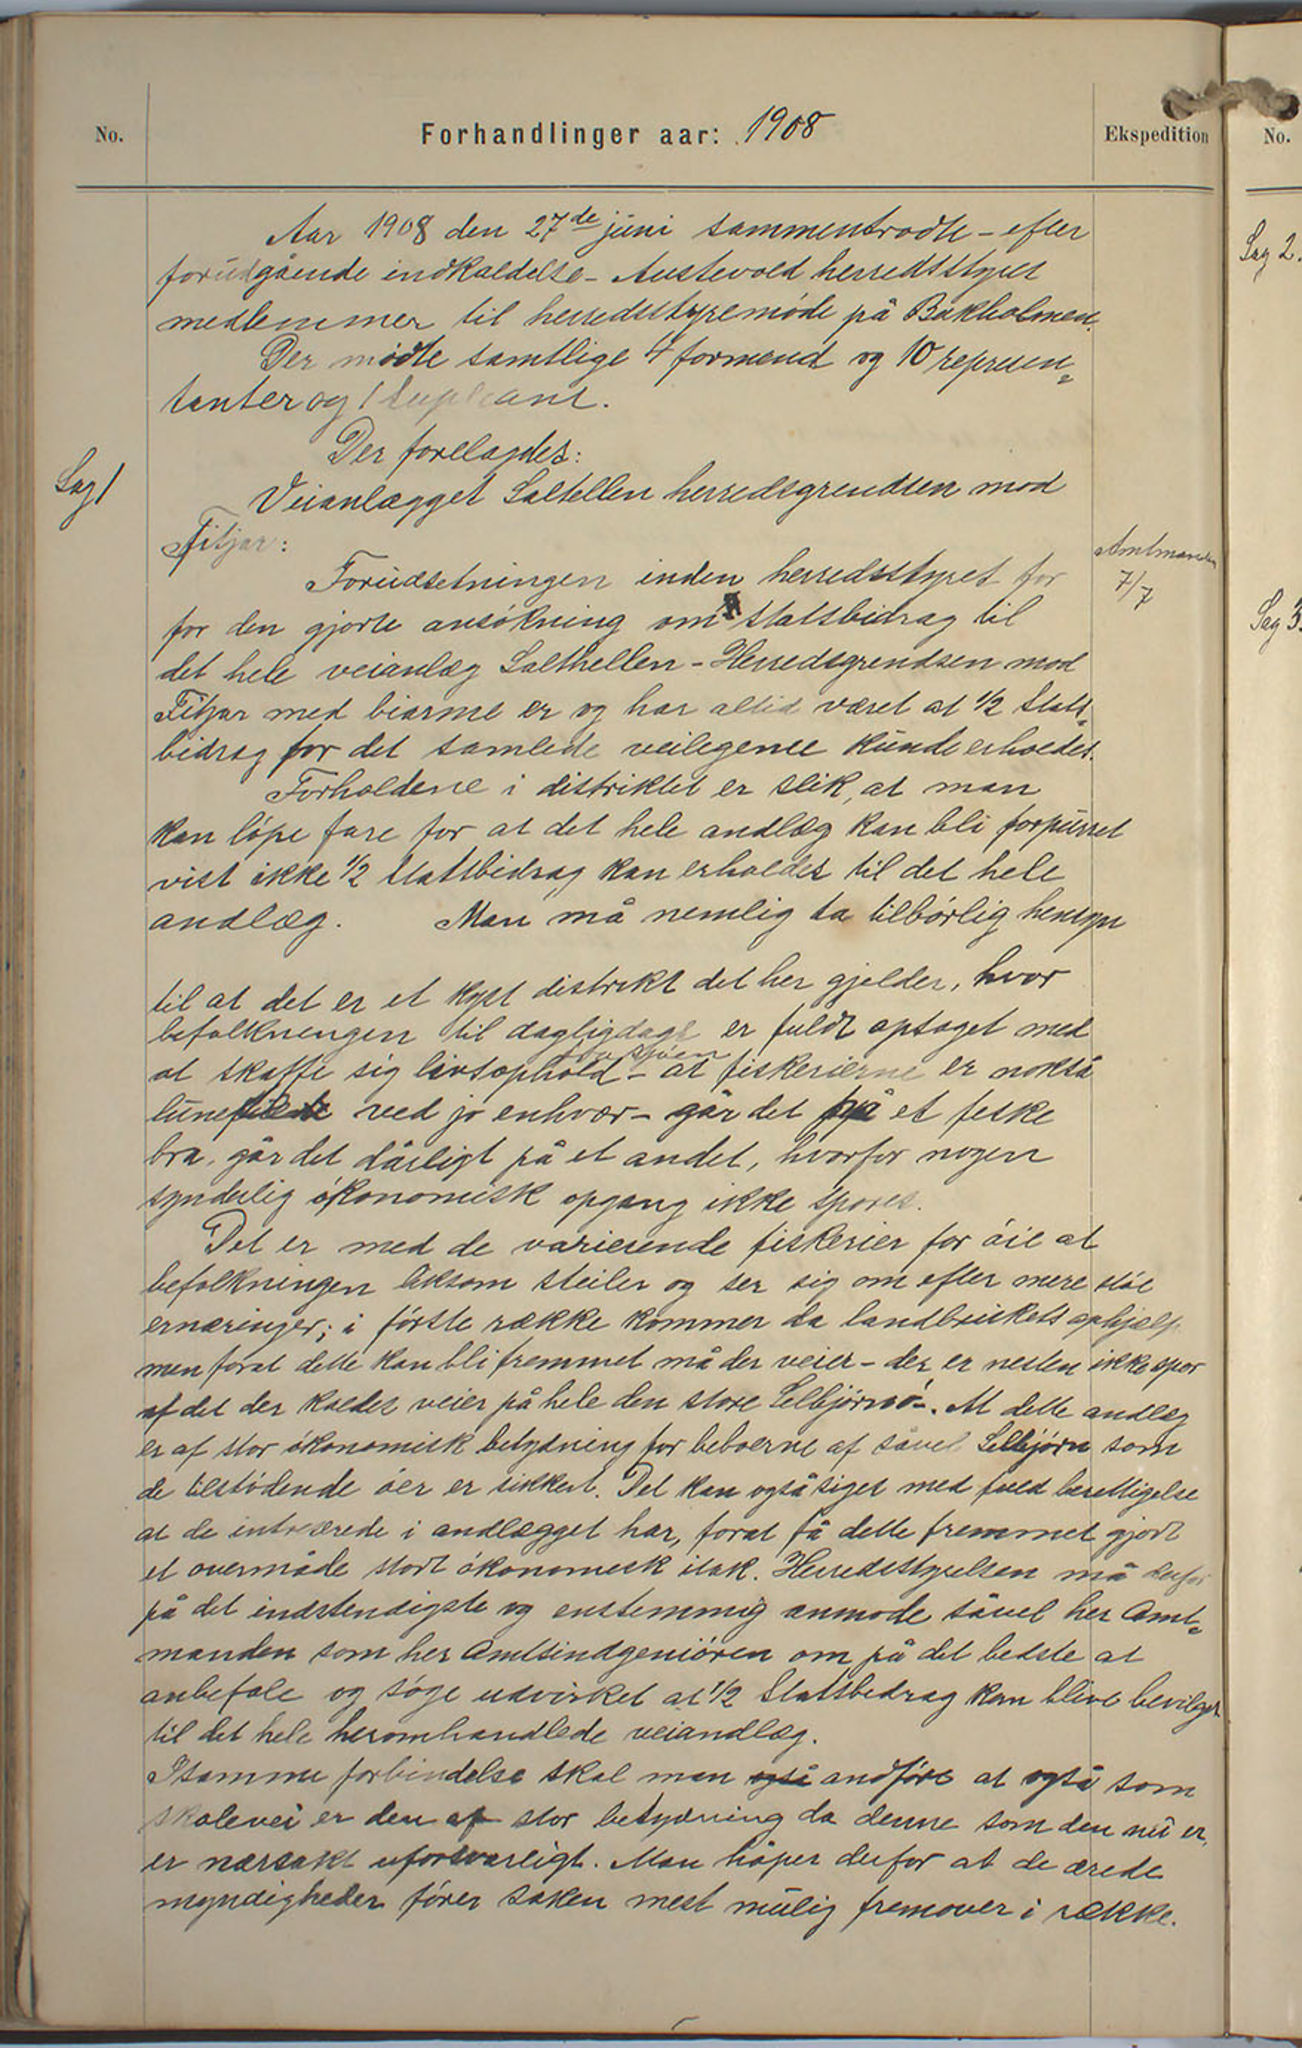 No.
Forhandlinger aar: 1908
Ekspedition
No.
Aar 1908 den 27de juni sammentrådte - efter
forudgående indkaldelse - Austevold herredsstyres
medlemmer til herredsstyremöde på Bakholmen.
Der mødte samtlige 4 formænd og 10 repræsen=
tanter og 1 supleant.
Der forelagdes:
Sag 1
Veianlægget Saltellen herredsgrendsen mod
Fitjar:
Amtmanden
7/7
Forudsetningen inden herredsstyret for
for den gjorte ansökning om statsbidrag til
det hele veianlæg Salthellen - Herredsgrendsen mod
Fitjar med biarme er og har altid været at 1/2 Stats=
bidrag for det samlede veilegeme kunde erholdes.
Forholdene i distriktet er slik, at man
kan löpe fare for at det hele andlæg kan bli forpurret
vist ikke 1/2 statsbidrag kan erholdes til det hele
andlæg. Man må nemlig ta tilbörlig hensyn
til at det er et kyst distrikt det her gjelder, hvor
befolkningen til dagligdags er fuldt optaget med
at skaffe sig livsophold - at fiskerierne er nokså
ved jo enhver - går det på et feske
bra, går det dårligt på et andet, hvorfor nogen
synderlig ökonomisk opgang ikke spores.
Det er med de varierende fiskerier for öie at
befolkningen liksom steiler og ser sig om efter mere støe
ernæringer; i förste række kommer da landbrukets ophjælp
men forat dette kan bli fremmet må der veier - der er nesten ikke spor
af det der kaldes veier på hele den store Selbjörnsö -. At dette andlæg
er af stor ökonomisk betydning for beboerne af såvel Selbjørn som
de tilstödende öer er sikkert. Det kan også siges med fuld berettigelse
at de intreærede i andlægget har, forat få dette fremmet gjort
et overmåde stort ökonomesk itak. Herredsstyrelsen må derfor
på det indstendigste og enstemmig anmode såvel her Amt=
manden som her Amtsindgeniören om på det bedste at
anbefale og söge udvirket at 1/2 Statsbedrag kan blive bevilget
til det hele heromhandlede veiandlæg.
I samme forbindelse skal man også andföre at også som
skolevei er den af stor betydning da denne som den nu er,
er nærsakt uforsvarligt. Man håper derfor at de ærede
myndigheder förer saken mest mulig fremover i række.
Sag 2.
Sag 3.